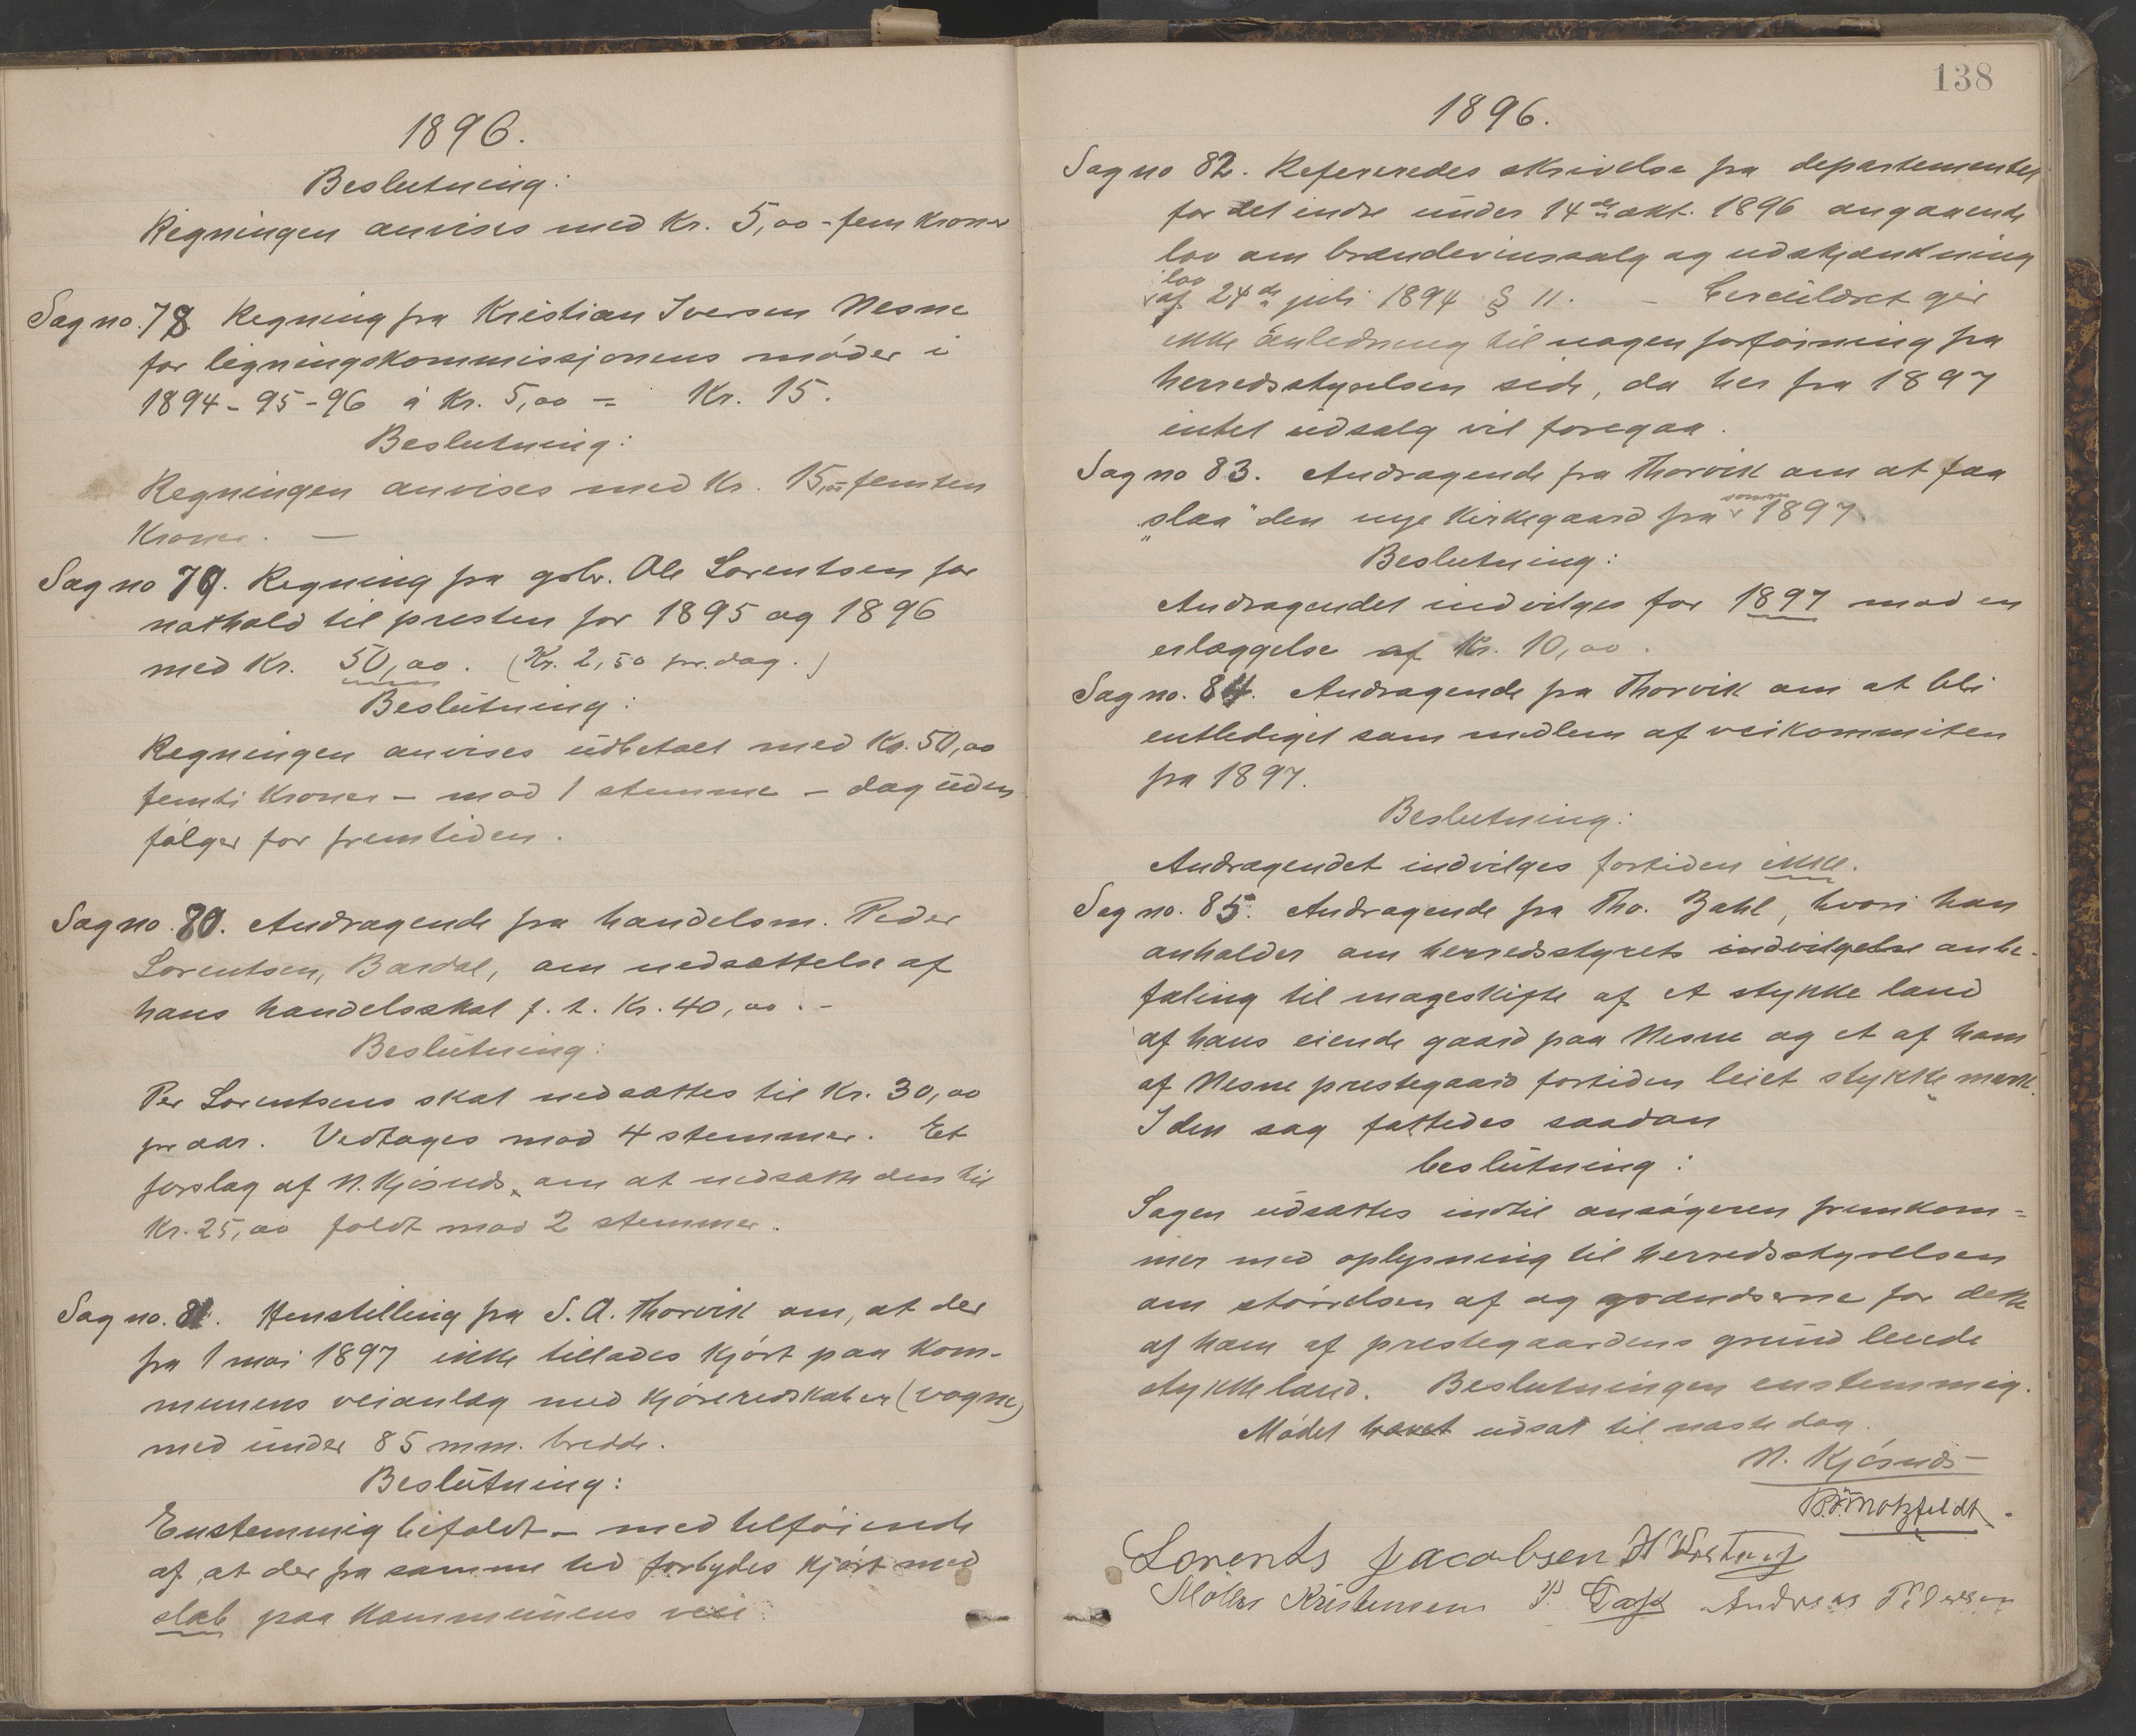 1896.
Beslutning:
Regningen anvises med Kr. 5,00 - fem Kroner
Sag no. 78 Regning fra Kristian Iversen Nesne
for ligningskommissjonens møder i
1894-95-96 á Kr. 5,00 = Kr. 15.
Beslutning:
Regningen anvises med Kr. 15,00 femten
Kroner. —
Sag no 79. Regning fra gbr. Ole Lorentsen for
nathold til presten for 1895 og 1896
med Kr. 50,00. (Kr. 2,50 pr. dag.)
Beslutning:
Regningen anvises udbetalt med Kr. 50,00
femti Kroner - mod 1 stemme - dog uden
følger for fremtiden.
Sag no. 80. Andragende fra handelsm. Peder
Lorentsen, Bardal, om nedsættelse af
hans handelsskat f. t. Kr. 40,00. -
Beslutning:
Per Lorentsens skat nedsættes til Kr. 30,00
pr aar. Vedtages mod 4 stemmer. Et
forslag af N. Kjøsnæs, om at nedsætte den til
Kr. 25,00 faldt mod 2 stemmer.
Sag no. 81. Henstilling fra S. A. Thorvik om, at der
fra 1 mai 1897 ikke tillades kjørt paa kom-
munens veianlæg med kjøreredskaber (vogne)
med under 85 mm. bredde.
Beslutning:
Enstemmig bifaldt - med tilføiende
af, at der fra samme tid forbydes kjørt med
slæb paa Kommunens veie.
138
1896.
Sag no 82. Refereredes skrivelse fra departementet
for det indre under 14de okt. 1896 angaaende
lov om brændevinssalg og udskjænkning
lov
af 24de juli 1894 § 11. - Cirkulæret gir
ikke anledning til nogen forføining fra
herredsstyrelsen side, da her fra 1897
intet udsalg vil foregaa.
Sag no 83. Andragende fra Thorvik om at faa
„slaa" den nye Kirkegaard fra 1897.
Beslutning:
Andragendet indvilges for 1897 mod en
erlæggelse af Kr. 10,00.
Sag no. 84. Andragende fra Thorvik om at bli
entlediget som medlem af veikommiten
fra 1897.
Beslutning:
Andragendet indvilges fortiden ikke.
Sag no. 85. Andragende fra Tho. Zahl, hvori han
anholder om herredsstyrets indvilgelse anbe-
faling til mageskifte af et stykke land
af hans eiende gaard paa Nesne og et af ham
af Nesne prestegaard fortiden leiet stykke mark.
I den sag fattedes saadan
beslutning:
Sagen udsættes indtil ansøgeren fremkom-
mer med oplysning til herredsstyrelsen
om størrelsen af og grændserne for dette
af ham af prestegaardens grund leiede
stykke land. Beslutningen enstemmig.
Mødet hævet udsat til næste dag.
N. Kjøsnæs
Motzfeldt.
Lorents Jacobsen
Kristensen P. Andreas Pedersen